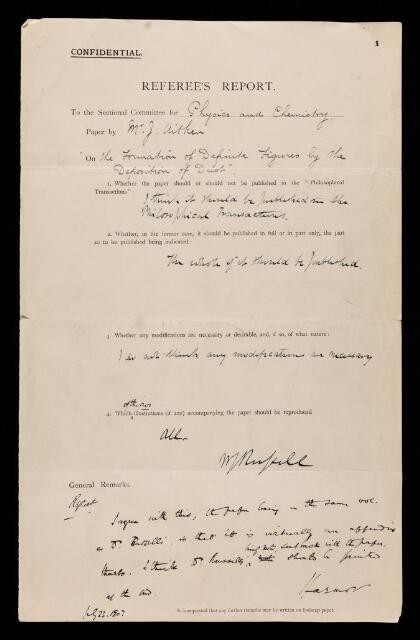 CONFIDENTIAL.
1
REFEREE'S REPORT.
To the Sectional Committee for Physics and Chemistry
Paper by Mr. J. Aitken
"On the Formation of Definite Figures by the
Deposition of Dust".
1. Whether the paper should or should not be published in the "Philosophical
Transactions":
I think it should be published in the
Philosophical Transactions.
2. Whether, in the former case, it should be published in full or in part only, the part
so to be published being indicated:
The whole of it should be published.
3. Whether any modifications are necessary or desirable, and, if so, of what nature:
I do not think any modifications are necessary
of the
4. Which illustrations (if any) accompanying the paper should be reproduced
All.
WJ Russell
General Remarks.
Report
I agree with this; the paper being in the same vol.
as Dr. Russell's so that it is virtually an appendix
thereto. I think Dr Russell's the paper, should be printed
at the end.
Larmor
July 22. 1903
It is requested that any further remarks may be written on foolscap paper.